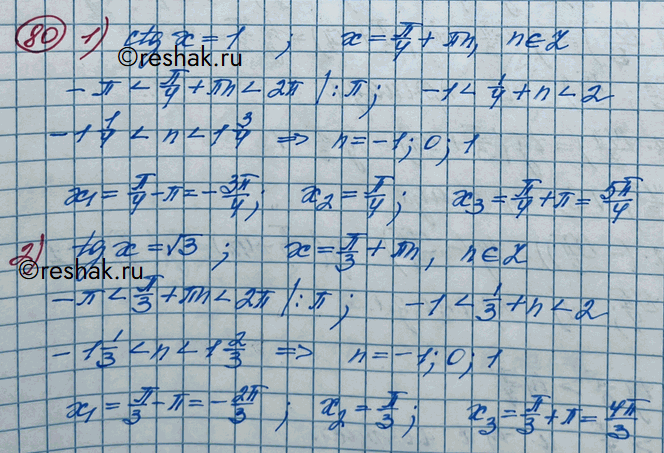 80 1) ctg x = 1 ; x = π/4 + πn, n ∈ Z
©reshak.ru
-π < π/4 + πn < 2π |:π ; -1 < 1/4 + n < 2
-1 1/4 < n < 1 3/4 ⇒ n = -1; 0; 1
x₁ = π/4 - π = -3π/4; x₂ = π/4; x₃ = π/4 + π = 5π/4
2) tg x = √3 ; x = π/3 + πn, n ∈ Z
©reshak.ru
-π < π/3 + πn < 2π |:π ; -1 < 1/3 + n < 2
-1 1/3 < n < 1 2/3 ⇒ n = -1; 0; 1
x₁ = π/3 - π = -2π/3 ; x₂ = π/3 ; x₃ = π/3 + π = 4π/3